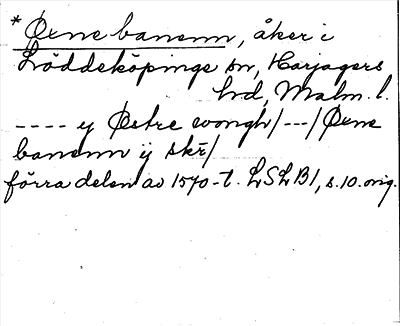 * Ørne banenn, åker i
Löddeköpinge sn, Harjagers
hd, Malm. l.
---- y Østre wongh/---/Ørne
banenn ij skr/
förra delen av 1570-t. LSLB1, s. 10. orig.